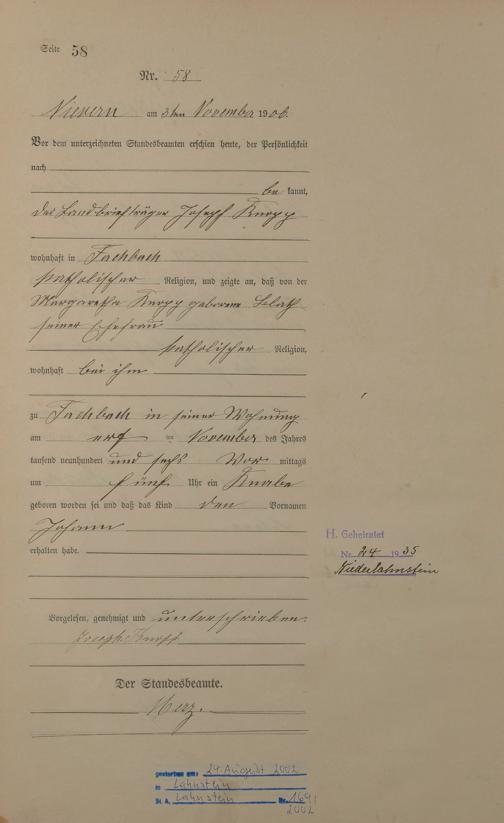 Seite 58
Nr. 58
Nievern am 3ten November 1906.
Vor dem unterzeichneten Standesbeamten erschien heute, der Persönlichkeit
nach
be kannt,
der Landbriefträger Joseph Knopp
wohnhaft in Fachbach
katholischer Religion, und zeigte an, daß von der
Margaretha Knopp geborene
seiner Ehefrau
katholischer Religion,
wohnhaft bei ihm
zu Fachbach in seiner Wohnung
am November des Jahres
tausend neunhundert und sechs Vor mittags
um fünf Uhr ein Knabe
geboren worden sei und daß das Kind den Vornamen
Johann
erhalten habe.
H. Geheiratet
Nr. 24 1935
Niederlahnstein
Vorgelesen, genehmigt und unterschrieben.
Joseph Knopp
Der Standesbeamte.
Merz.
gestorben am: 24. August 2002
in Lahnstein
St. A. Lahnstein Nr. 169/
2002